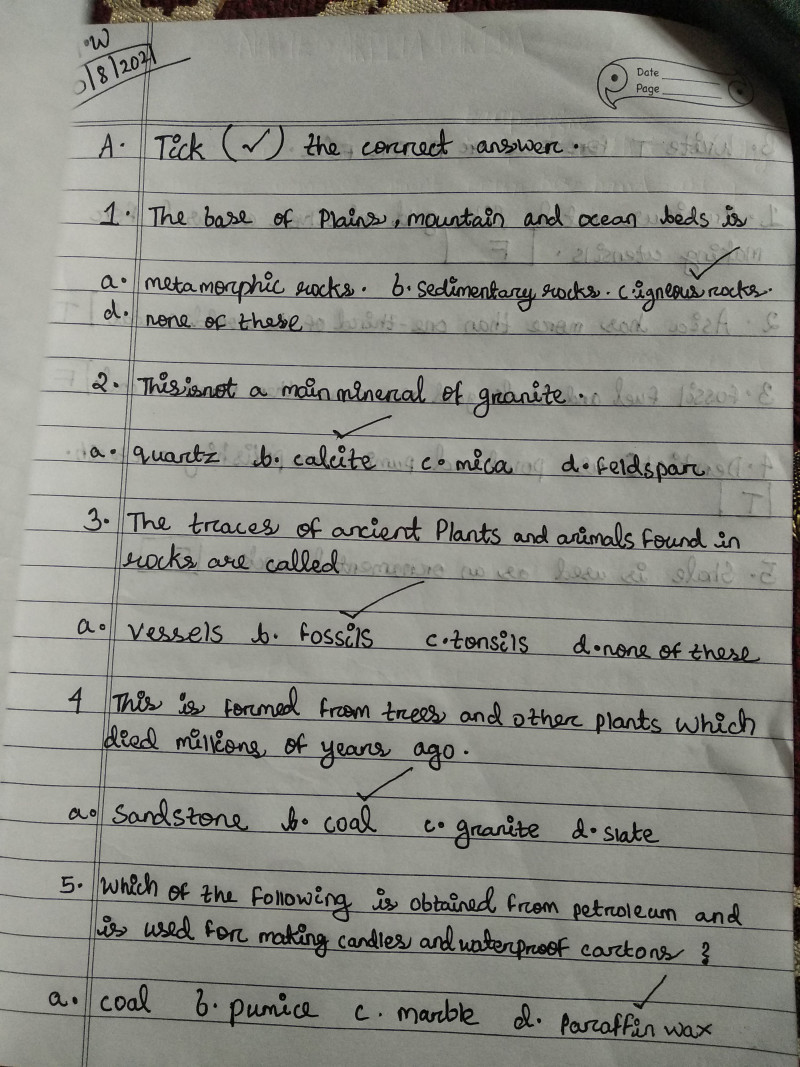 W
/8/2021
Date
Page
A. Tick (✓) the correct answer.
1. The base of Plains, mountain and ocean beds is
a. metamorphic rocks. b. Sedimentary rocks. c. igneous rocks. ✓
d. none of these
2. This is not a main mineral of granite.
a. quartz b. calcite ✓ c. mica d. feldspar
3. The traces of ancient Plants and animals found in
rocks are called
a. vessels b. fossils ✓ c. tonsils d. none of these
4 This is formed from trees and other plants which
died millions of years ago.
a. Sandstone b. coal ✓ c. granite d. slate
5. Which of the following is obtained from petroleum and
is used for making candles and waterproof cartons?
a. coal b. pumice c. marble d. Paraffin wax ✓